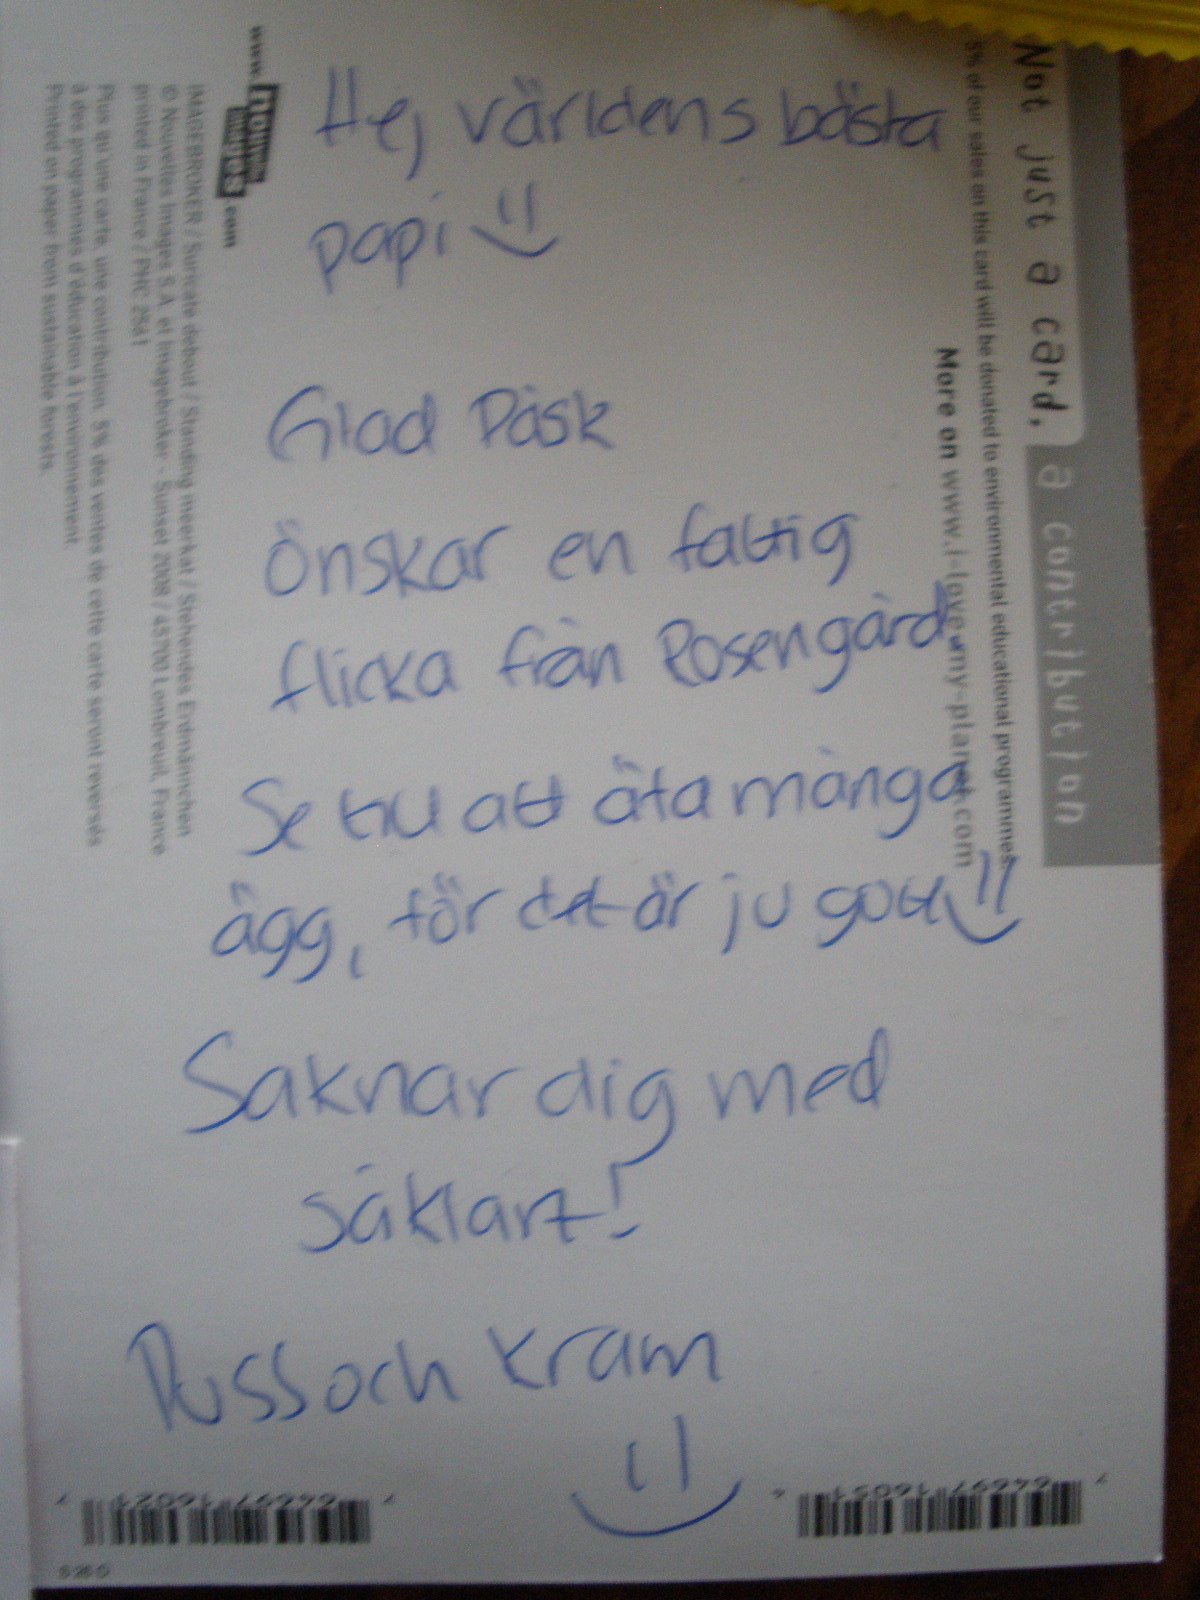 Hej världens bästa
papi
Glad Påsk
önskar en fattig
flicka från Rosengård.
Se till att äta många
ägg, för det är ju gott
Saknar dig med
såklart!
Puss och kram
Not just a card, a contribution
5% of our sales on this card will be donated to environmental educational programmes.
More on www.i-love-my-planet.com
www.nouvelles images.com
IMAGEBROKER / Suricate debout / Standing meerkat / Stehendes Erdmännchen
© Nouvelles Images S.A. et Imagebroker - Sunset 2008 / 45700 Lombreuil, France
printed in France / PHC 2561
Plus qu'une carte, une contribution. 5% des ventes de cette carte seront reversés
à des programmes d'éducation à l'environnement.
Printed on paper from sustainable forests.